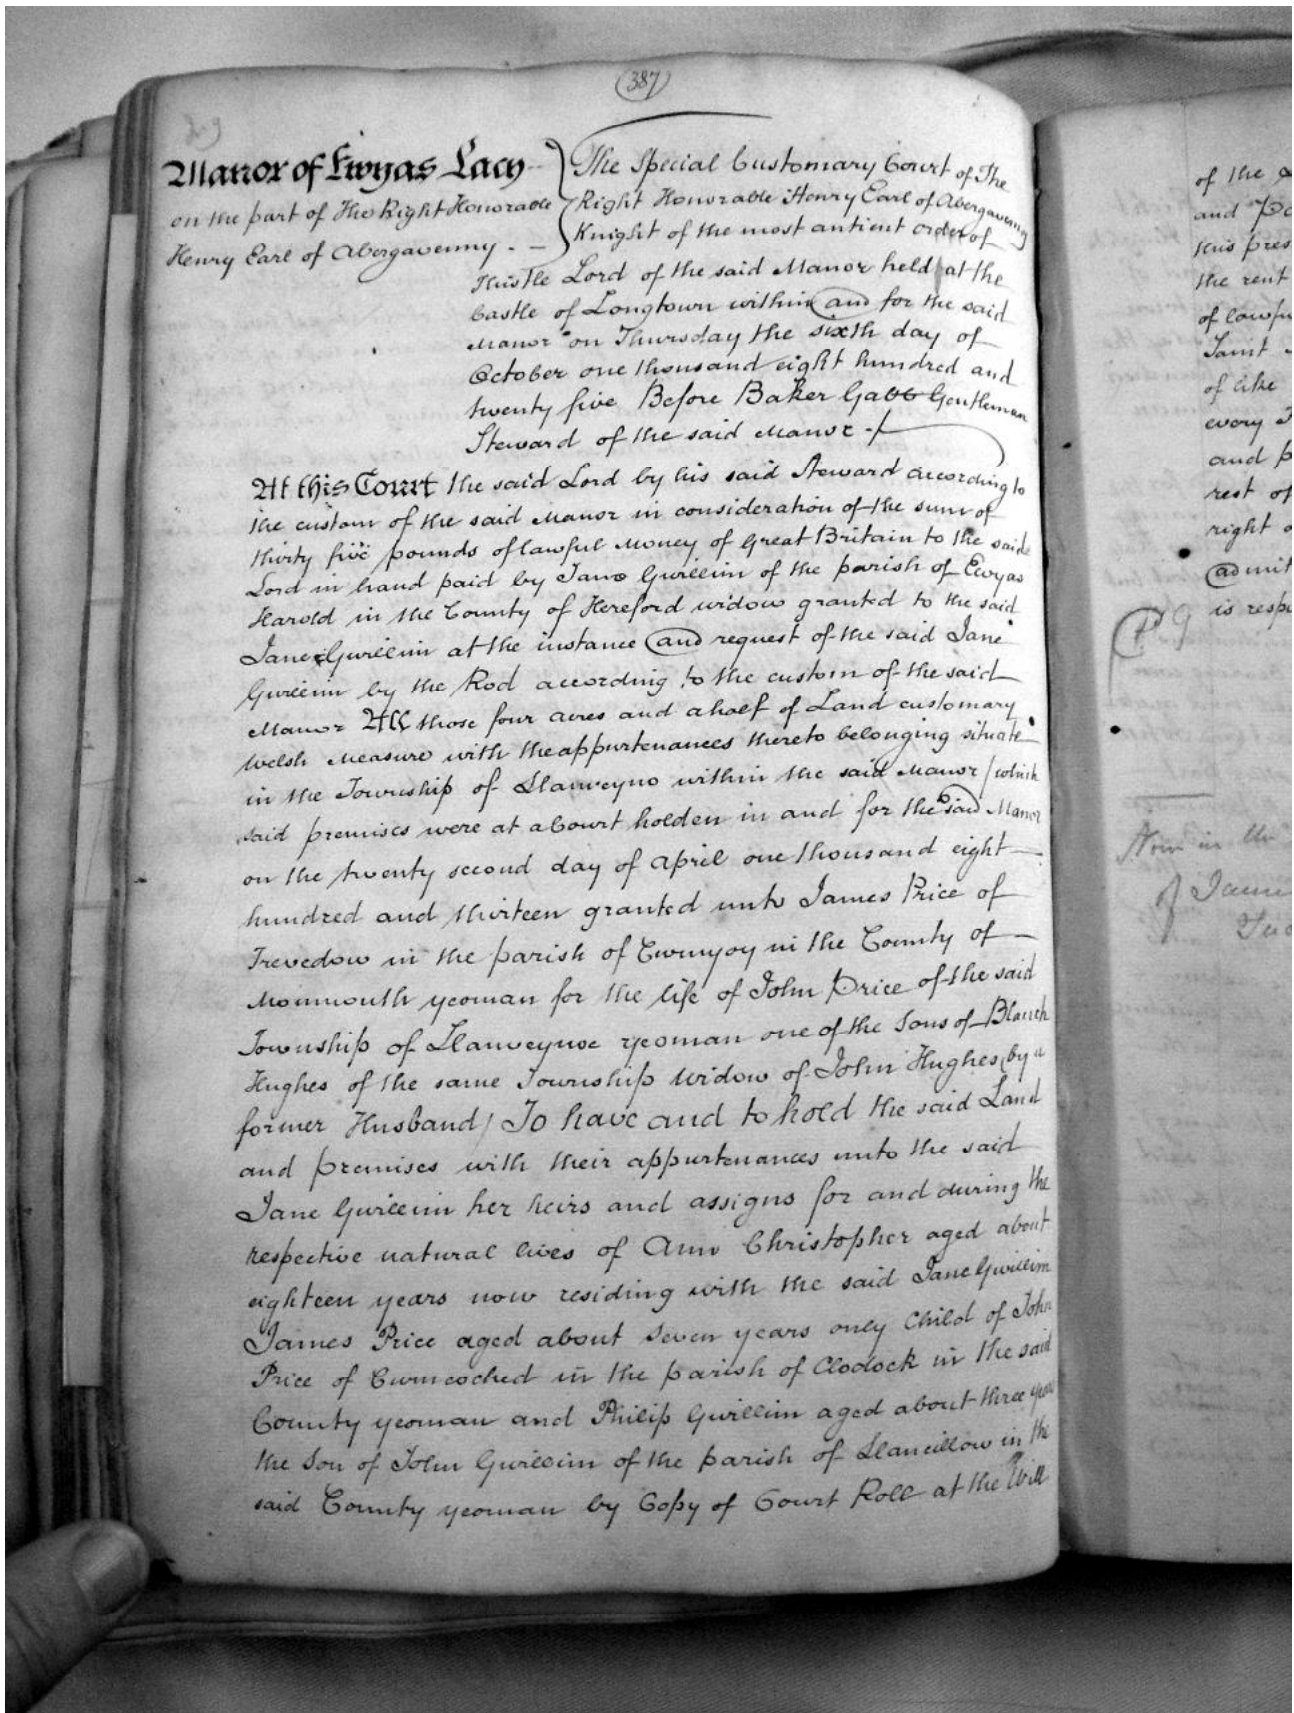 387
Manor of Ewyas Lacy
on the part of The Right Honorable
Henry Earl of Abergavenny. -
The Special Customary Court of The
Right Honorable Henry Earl of Abergavenny
Knight of the most antient order of
Thistle Lord of the said Manor held at the
Castle of Longtown within and for the said
Manor on Thursday the sixth day of
October one thousand eight hundred and
twenty five Before Baker Gabb Gentleman
Steward of the said Manor
At this Court the said Lord by his said Steward according to
the custom of the said Manor in consideration of the sum of
thirty five pounds of lawful Money of Great Britain to the said
Lord in hand paid by Jane Gwillim of the parish of Ewyas
Harold in the County of Hereford widow granted to the said
Jane Gwillim at the instance and request of the said Jane
Gwillim by the Rod according to the custom of the said
Manor All those four acres and a half of Land customary
Welsh Measure with the appurtenances thereto belonging situate
in the Township of Llanveyno within the said Manor / which
said premises were at a Court holden in and for the said Manor
on the twenty second day of April one thousand eight
hundred and thirteen granted unto James Price of
Trevedow in the parish of Cwmyoy in the County of
Monmouth yeoman for the life of John Price of the said
Township of Llanveynoe yeoman one of the Sons of Blanch
Hughes of the same Township Widow of John Hughes, by a
former Husband / To have and to hold the said Land
and premises with their appurtenances unto the said
Jane Gwillim her heirs and assigns for and during the
respective natural lives of Ann Christopher aged about
eighteen years now residing with the said Jane Gwillim
James Price aged about Seven years only Child of John
Price of Cwmcoched in the parish of Clodock in the said
County yeoman and Philip Gwillim aged about three years
the Son of John Gwillim of the parish of Llancillow in the
said County yeoman by Copy of Court Roll at the Will
of the
and
this pres
the rent
of lawfu
Saint
of like
every
and p
rest of
right o
admit
is resp
PG
Now in the
of Jame